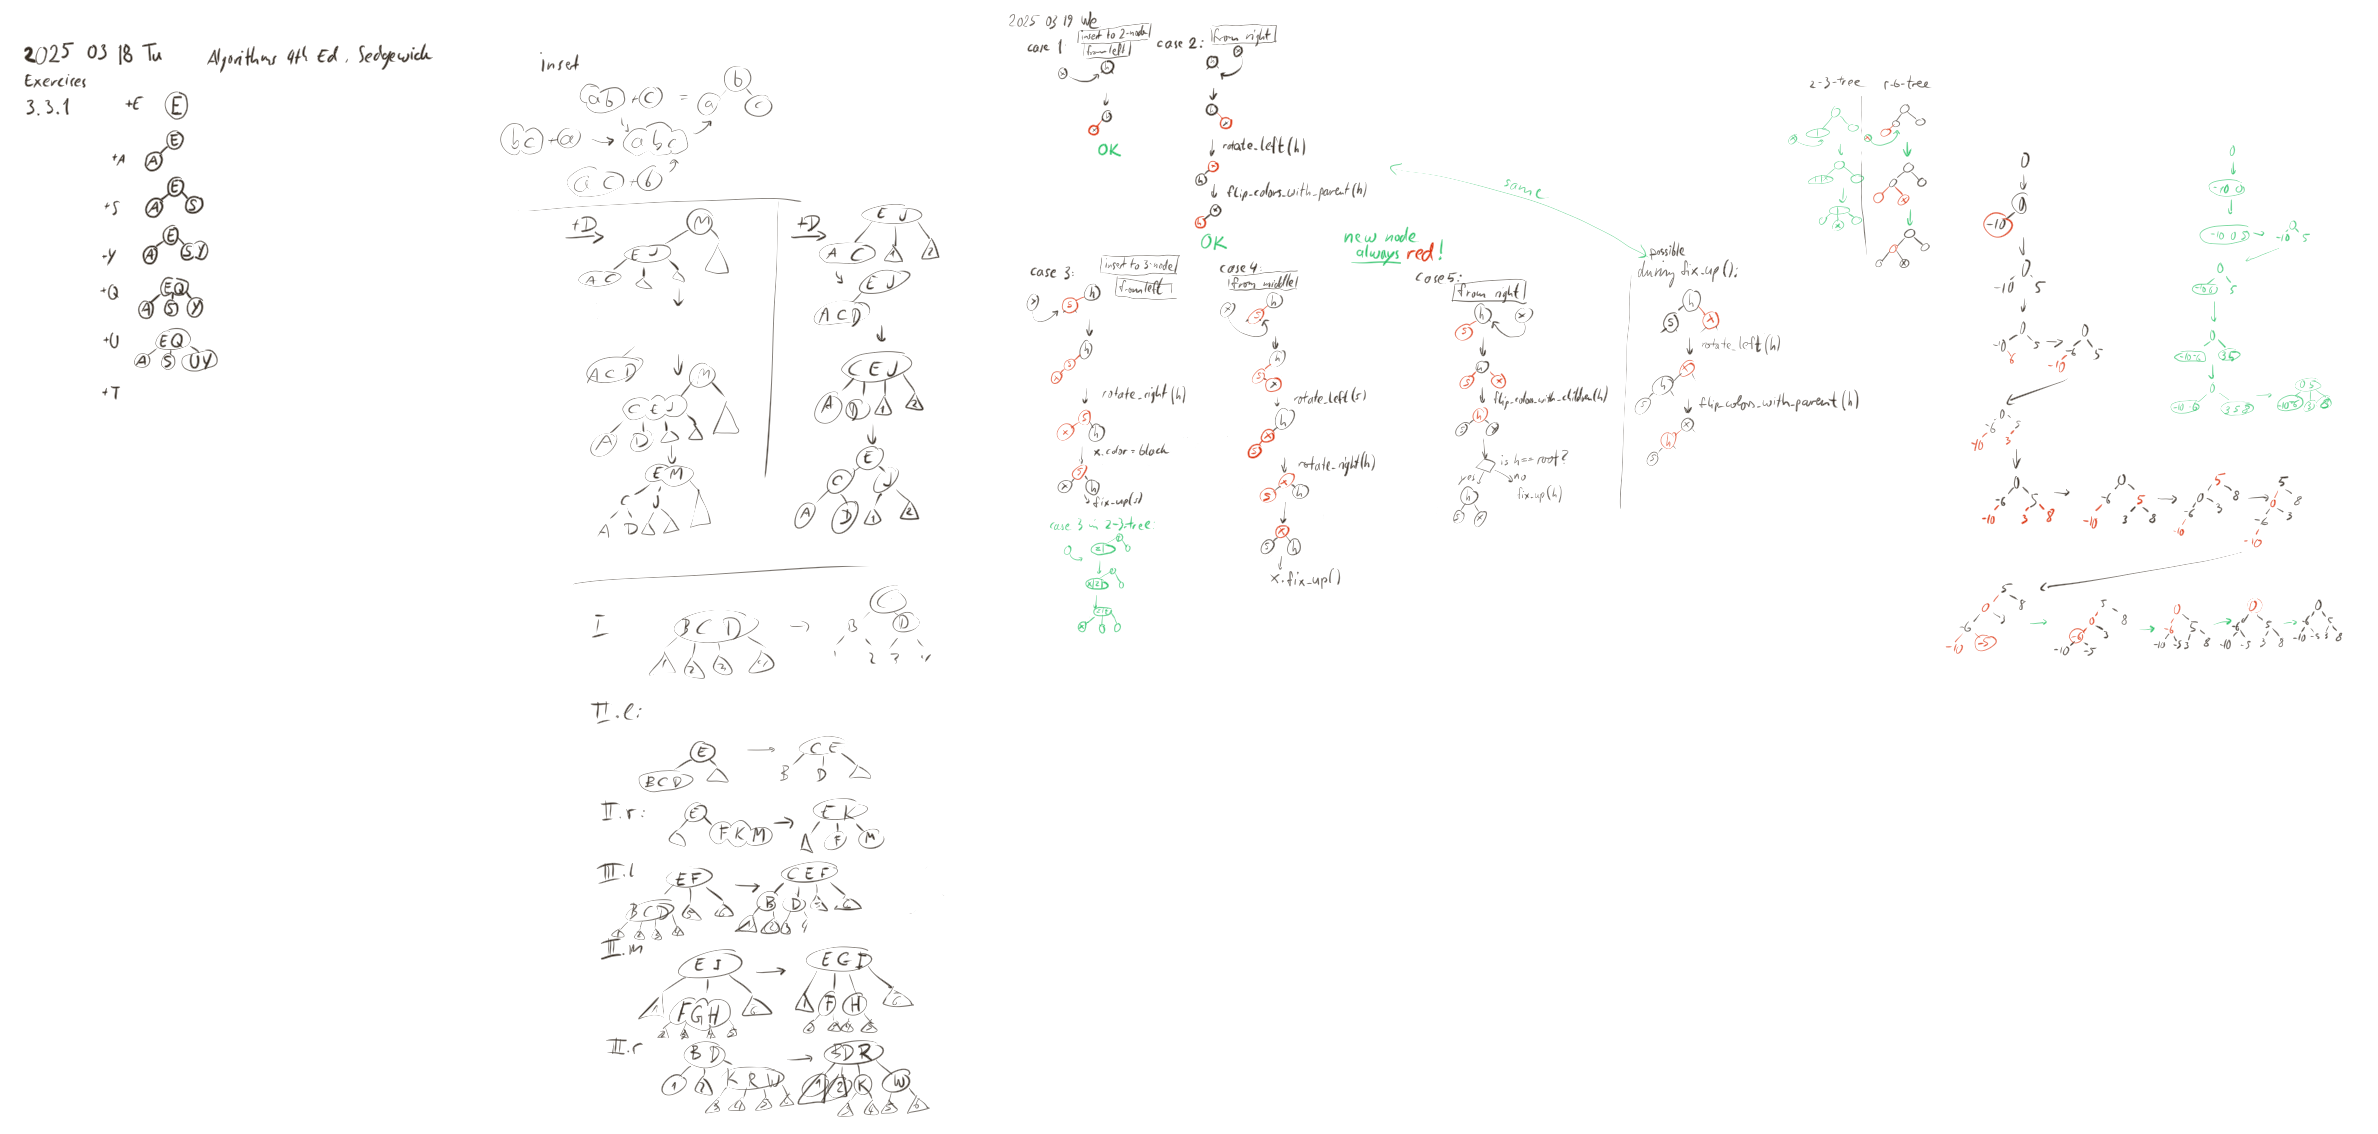 2025 03 18 Tu
Algorithms 4th Ed, Sedgewick
Exercises
3.3.1
+E
E
+A
E
A
+S
E
A S
+Y
E
A SY
+Q
EQ
A S Y
+U
EQ
A S UY
+T
inset
ab + c =
b
a c
bc + a
abc
a c + b
+D
M
E J
A C
A C D
M
C E J
A D
E M
C J
A D
+D
E J
A C 1 2
E J
A C D
C E J
A D 1 2
E
C J
A D 1 2
I
B C D
1 2 3 4
C
B D
1 2 3 4
II.l:
E
B C D
C E
B D
II.r:
E
F K M
E K
F M
III.l
E F
B C D
C E F
B D
III.m
E I
F G H
E G I
F H
III.r
B D
1 2 K R W
3 4 5 6
B D R
1 2 K W
3 4 5 6
2025 03 19 We
case 1
insert to 2-node
from left
x h
h
x
OK
case 2:
from right
x
h
h
x
rotate_left(h)
x
h
flip_colors_with_parent(h)
x
h
OK
same
new node
always red!
case 3:
insert to 3-node
from left
x s h
h
s
x
rotate_right(h)
s
x h
x.color = black
s
x h
fix-up(s)
case 3 in 2-3-tree:
case 4:
from middle
h
x s
h
s
x
rotate_left(s)
h
x
s
rotate_right(h)
x
s h
x
s h
x.fix_up()
case 5:
from right
h x
s
h
s x
flip_colors_with_children(h)
h
s x
is h == root?
yes
no
h
s x
fix_up(h)
possible
during fix_up():
h
s x
rotate_left(h)
x
h
s
flip_colors_with_parent(h)
x
h
s
2-3-tree
r-b-tree
0
0
-10
0
-10 5
0
-10 5
6
0
-6 5
-10
0
-6 5
-10 3
0
-6 5
-10 3 8
0
-6 5
-10 3 8
5
0 8
-6 3
-10
5
0 8
-6 3
-10
5
0 8
-6 3
-10 -5
5
0 8
-6 3
-10 -5
0
-6 5
-10 -5 3 8
0
-6 5
-10 -5 3 8
0
-6 5
-10 -5 3 8
0
-10 0
-10 0 5
0
-10 5
0
-10 6 5
0
-10 -6 3 5
0
-10 -6 3 5 8
0 5
-10 -6 3 8